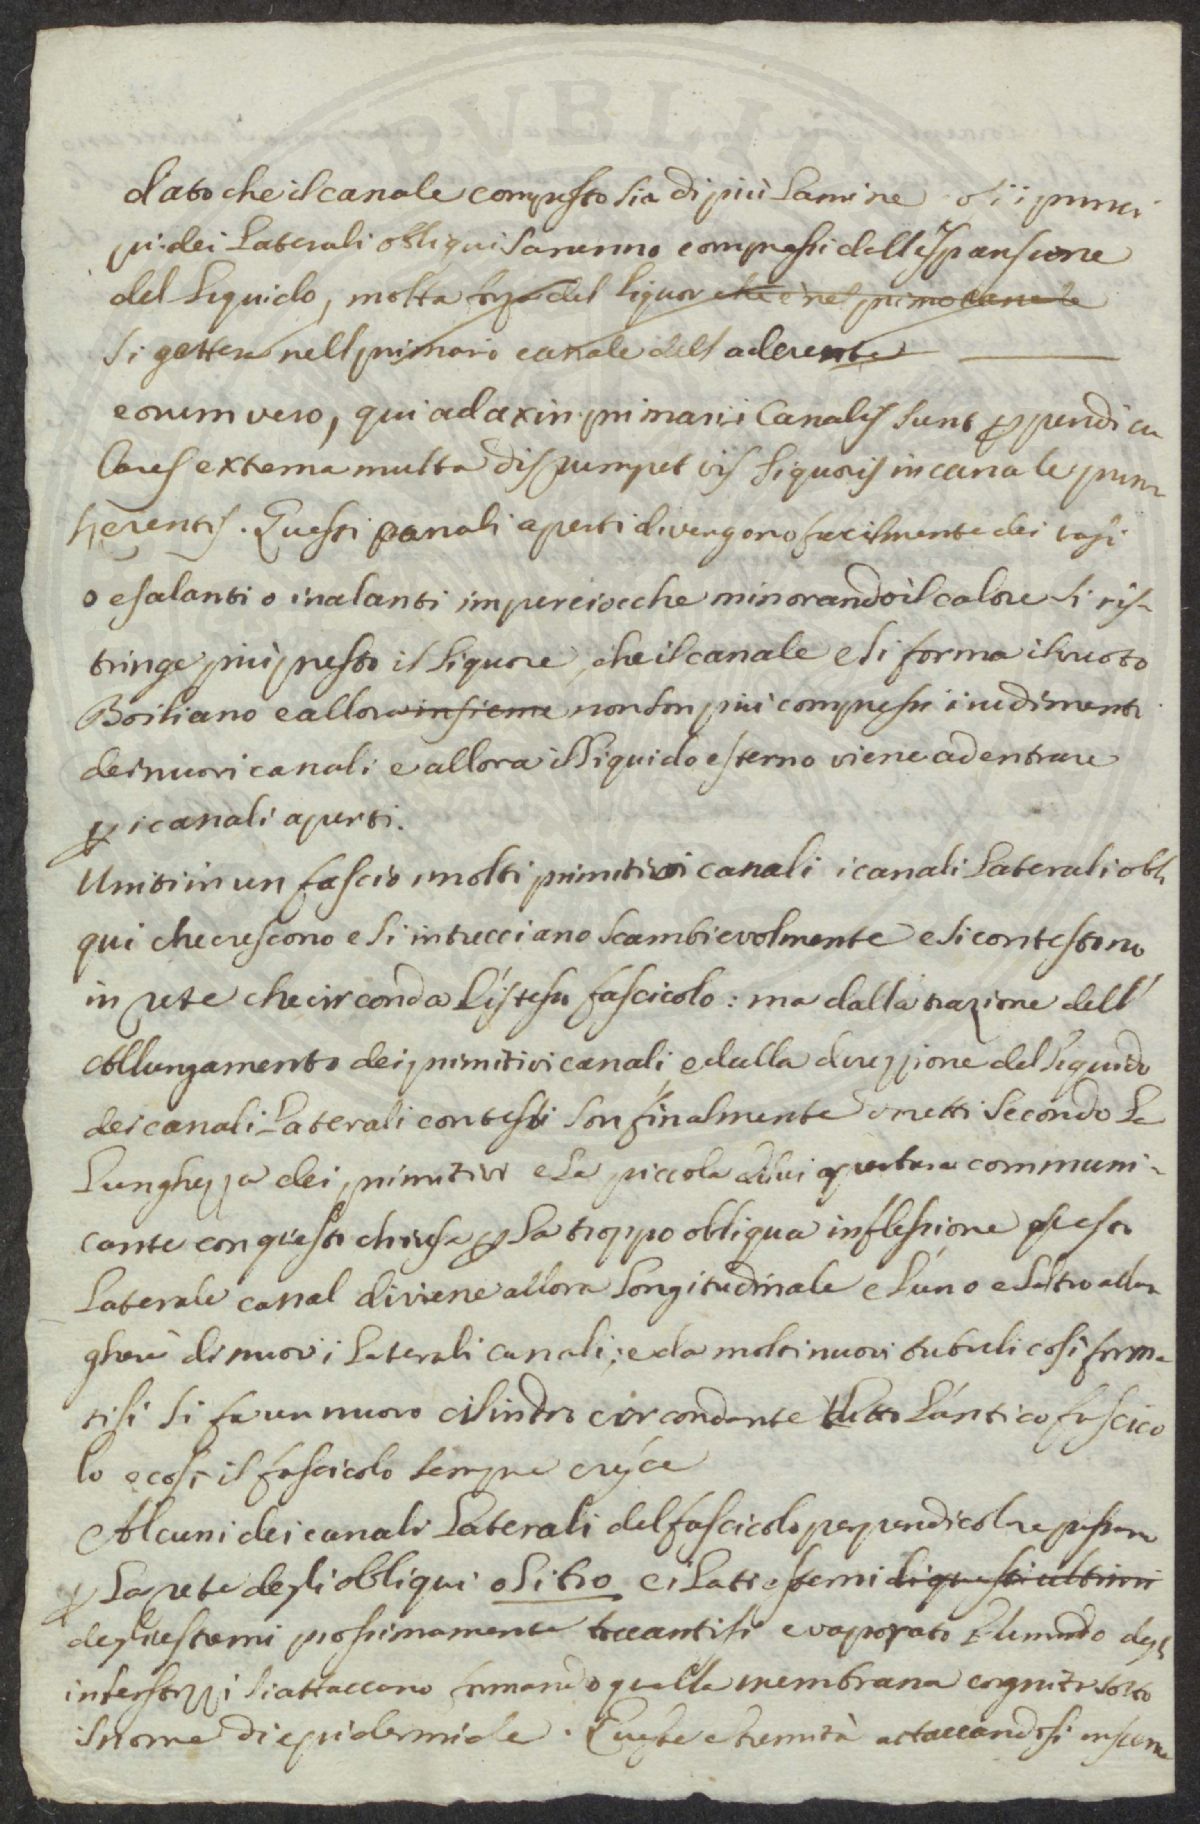 PVBLIC
dato che il canale composto sia di più Lamine o i i princi
pi dei Laterali obliqui saranno compressi dall'espansione
del Liquido, molta forza del liquor che è nel primo canale
si gettera nell primario canale dell aderente
eorum vero, qui ad axin primarii Canalis sunt ꝑpendicu
lares externa multa disrumpet vis Liquoris in canale prim
herentis. Questi canali aperti divengono facilmente dei vasi
o esalanti o inalanti imperciocche minorando il calore si ris-
tringe più presto il Liquore, che il canale e si forma il vuoto
Boiliano e allora insieme non son più compressi i rudimenti
dei nuovi canali e allora il Liquido esterno viene ad entrare
ꝑ i canali aperti.
Uniti in un fascio molti primitivi canali i canali Laterali obli
qui che crescono e si intrecciano scambievolmente e si contestono
in rete che circonda l'istesso fascicolo: ma dalla trazione dell'
Allungamento dei primitivi canali e dalla direzzione del Liquido
dei canali Laterali contesti son finalmente eretti secondo la
Lunghezza dei primitivi e la piccola di lui apertura communi-
cante con questi chiusa ꝑ la troppo obliqua inflessione questi
Laterale canal diviene allora Longitudinale e l'uno e l'altro allar
gherà di nuovi i Laterali canali; e da molti nuovi tubuli così forma-
tisi si fa un nuovo cilindro circondante tutto l'antico fascico
lo e così il fascicolo sempre cresce
Alcuni dei canali Laterali del fascicolo perpendicolare passano
ꝑ la rete degli obliqui o Litro e i Lati esterni di questi ultimi
degli estremi prossimamente toccantisi evaporato l'umido degl
interstizzi si attaccano formando quella membrana cognita sotto
il nome di epidermide. Queste estremità attaccandosi insieme